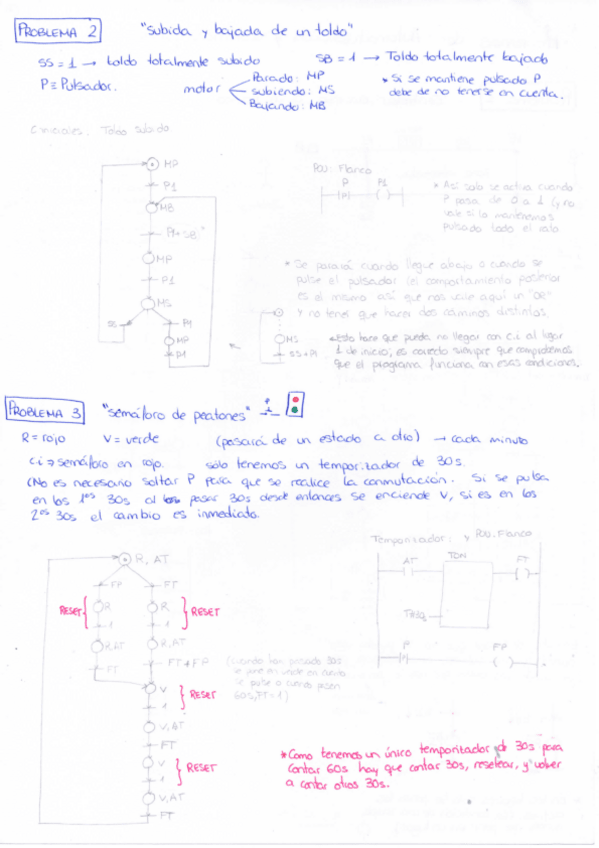 PROBLEMA 2 "subida y bajada de un toldo"
SS = 1 → toldo totalmente subido SB = 1 → Toldo totalmente bajado
P ≡ Pulsador. motor Parado: MP
subiendo: MS
Bajando: MB
* Si se mantiene pulsado P
debe de no tenerse en cuenta.
C. iniciales: Toldo subido
MP
P1
MB
P1+SB
MP
P1
MS
SS P1
MP
P1
POU: Flanco
P P1
|P| ( )
* Así solo se activa cuando
P pasa de 0 a 1 (y no
vale si la mantenemos
pulsado todo el rato
* Se parará cuando llegue abajo o cuando se
pulse el pulsador (el comportamiento posterior
es el mismo así que nos vale aquí un "OR"
y no tener que hacer dos caminos distintos.
MS
SS+P1
*Esto hace que pueda no llegar con c.i al lugar
1 de inicio, es correcto siempre que comprobemos
que el programa funciona con esas condiciones.
PROBLEMA 3 "semáforo de peatones"
R = rojo V = verde (pasará de un estado a otro) → cada minuto
c.i → semáforo en rojo. sólo tenemos un temporizador de 30s.
(No es necesario soltar P para que se realice la conmutación. Si se pulsa
en los 1os 30s al pasar 30s desde entonces se enciende V, si es en los
2os 30s el cambio es inmediato.
R, AT
FP FT
RESET R R RESET
1 1
R,AT R,AT
FT FT+FP
(cuando han pasado 30s
se pone en verde en cuanto
se pulse o cuando pasen
60s, FT=1)
V RESET
1
V,AT
FT
V RESET
1
V,AT
FT
Temporizador: y POU. Flanco
AT TON FT
T#30s
P FP
|P| ( )
*Como tenemos un único temporizador de 30s para
contar 60s hay que contar 30s, resetear, y volver
a contar otros 30s.